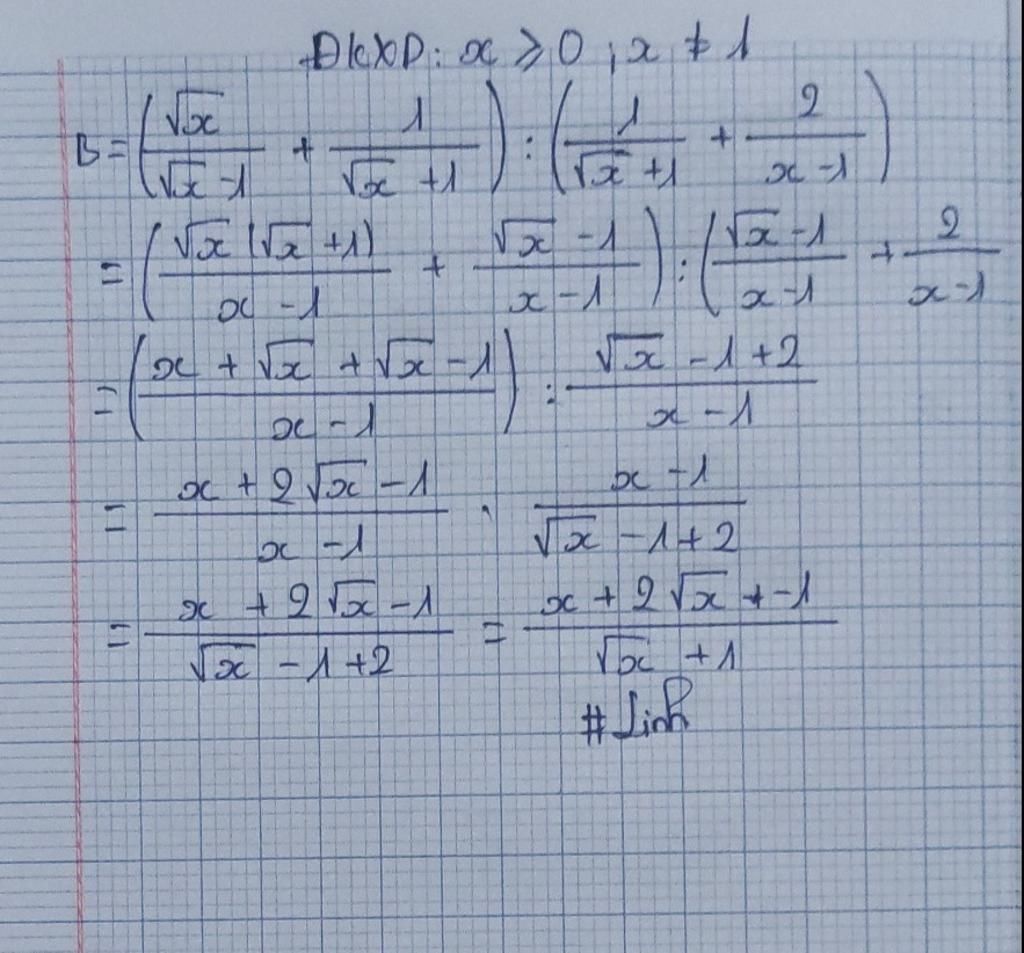 ĐKXĐ: x ⩾ 0, x ≠ 1
B = (√x/(√x - 1) + 1/(√x + 1)) : (1/(√x + 1) + 2/(x - 1))
= (√x(√x + 1)/(x - 1) + (√x - 1)/(x - 1)) : ((√x - 1)/(x - 1) + 2/(x - 1)
= ((x + √x + √x - 1)/(x - 1)) : (√x - 1 + 2)/(x - 1)
= (x + 2√x - 1)/(x - 1) . (x - 1)/(√x - 1 + 2)
= (x + 2√x - 1)/(√x - 1 + 2) = (x + 2√x + -1)/(√x + 1)
#Linh